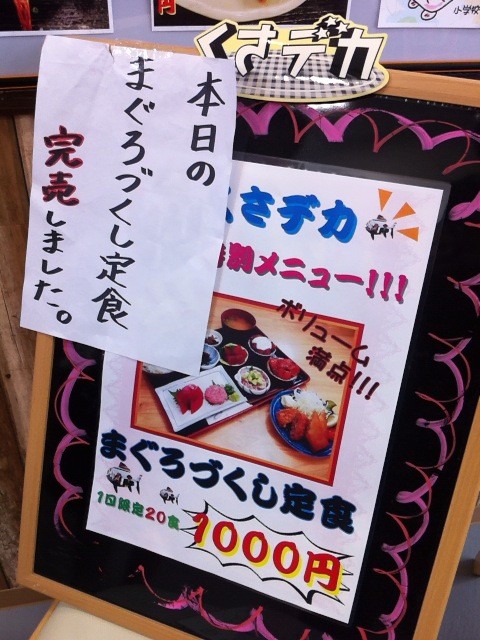 くさデカ
本日の
まぐろづくし定食
完売しました。
くさデカ
特別メニュー!!!
ボリューム
満点!!!
まぐろづくし定食
1日限定20食
1000円
小学校
円